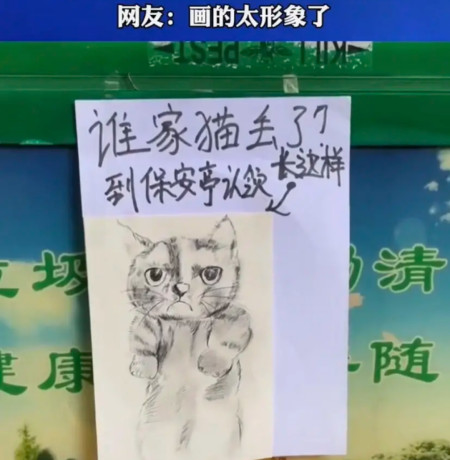 网友：画的太形象了
KILL PEST
谁家猫丢了？
到保安亭认领
长这样
垃圾
清
健康
随